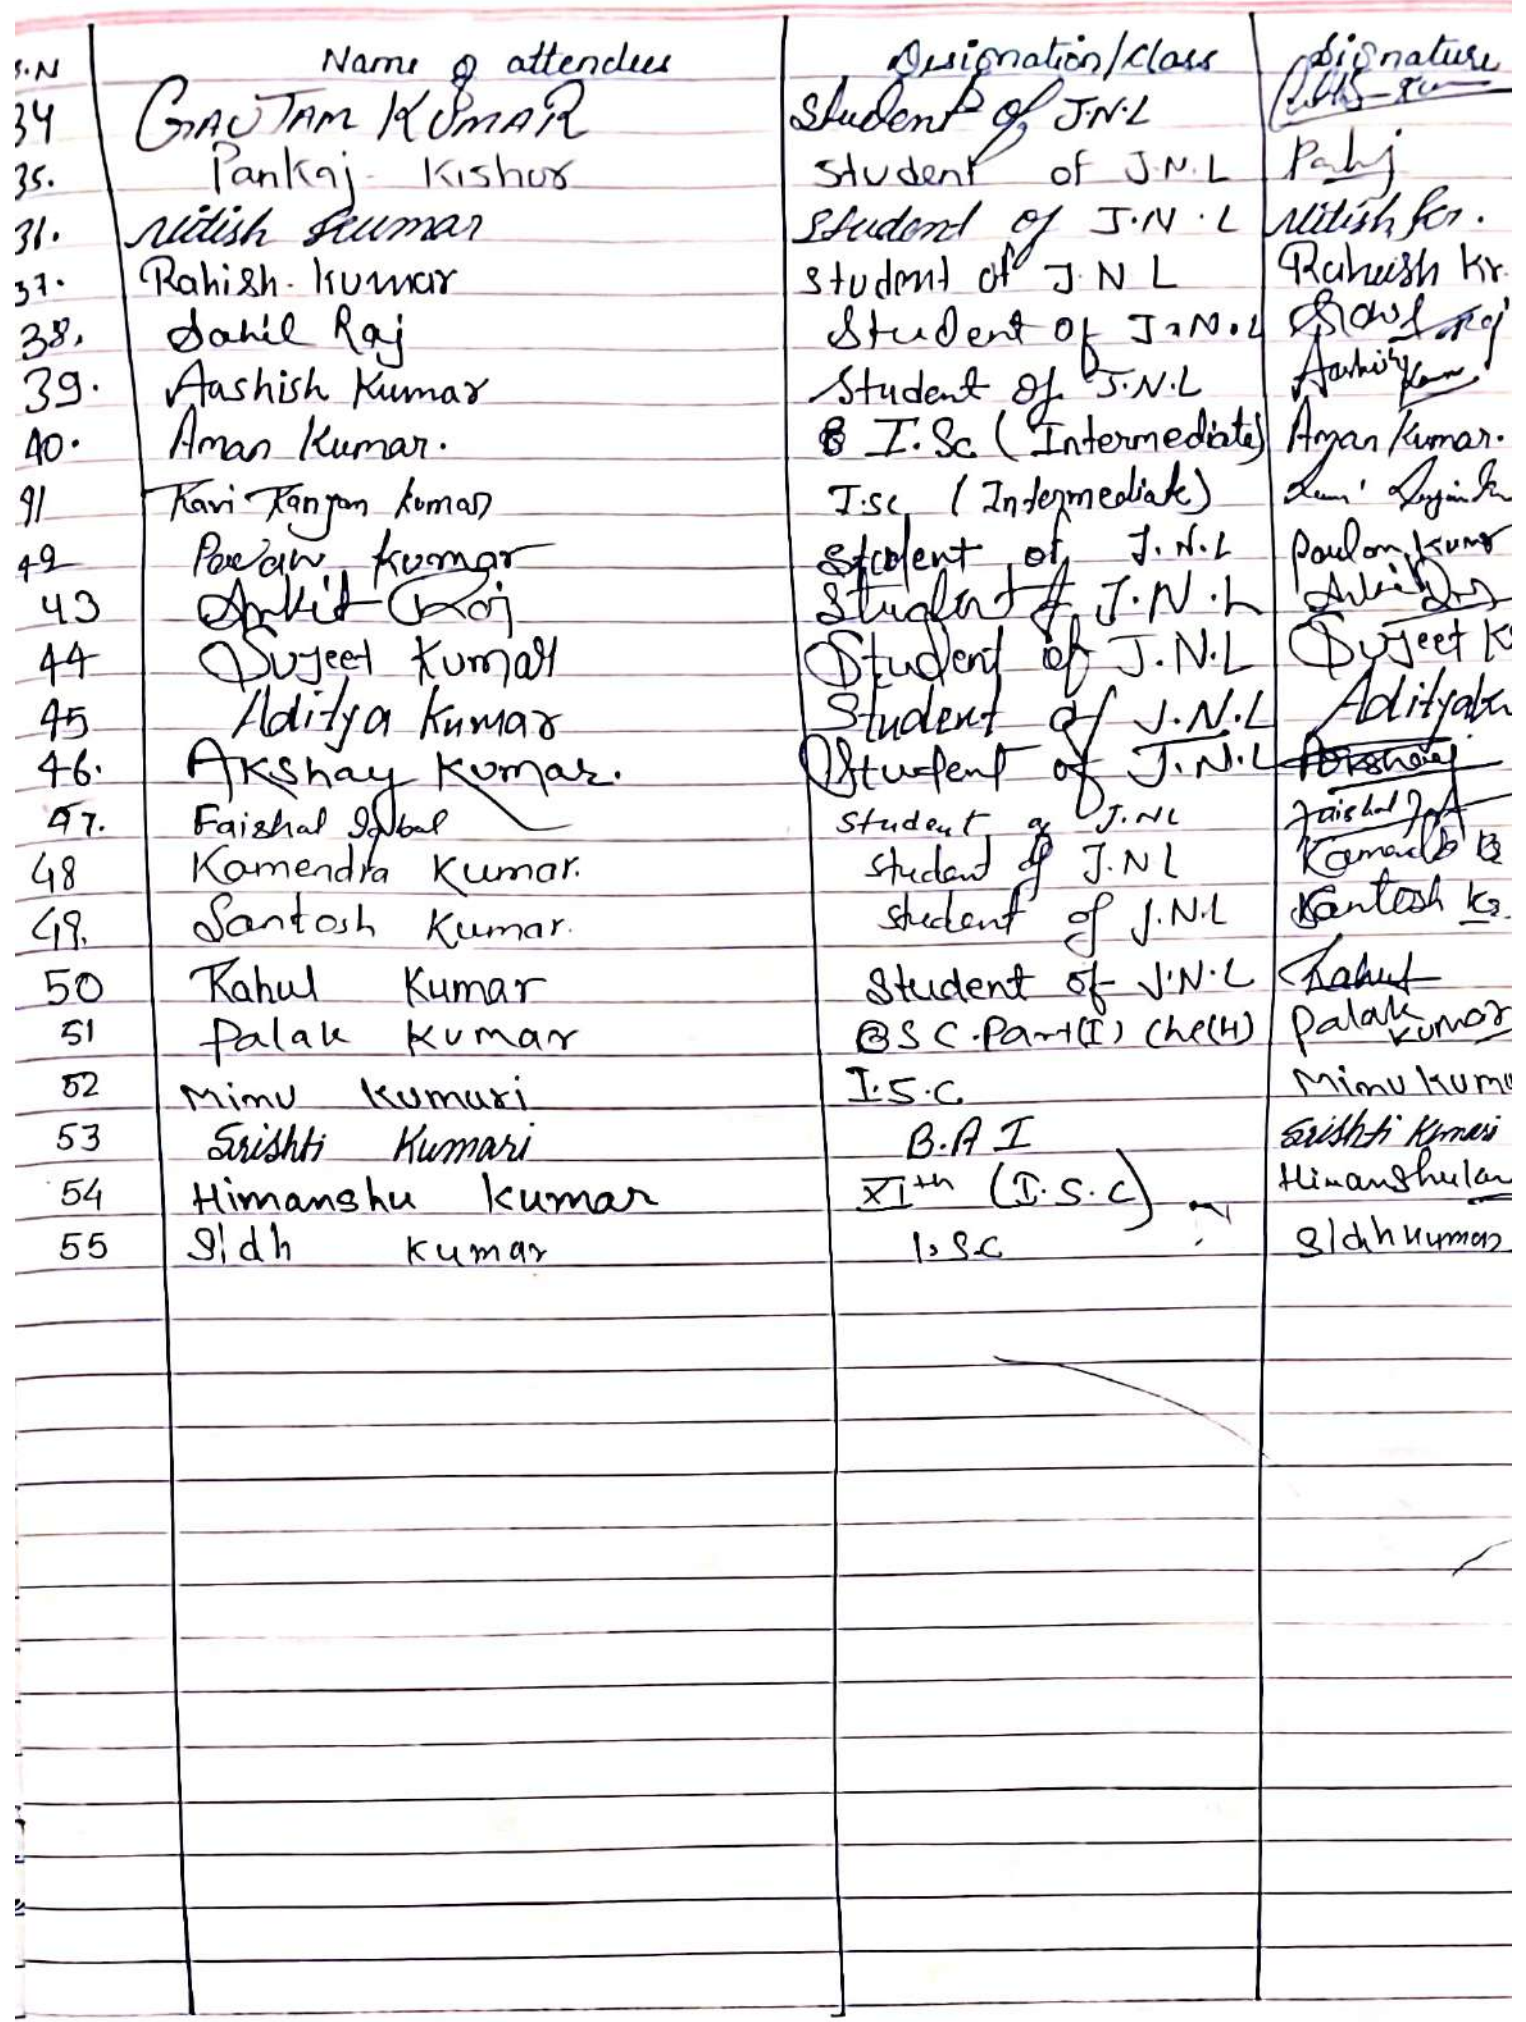 S.N Name of attendees Designation/Class Signature
34 GAUTAM KUMAR Student of J.N.L
35. Pankaj Kishor Student of J.N.L Pankaj
31. Nitish Kumar Student of J.N.L Nitish Kr.
37. Rahish Kumar Student of J N L Rahish Kr.
38. Sahil Raj Student of J.N.L Raj
39. Aashish Kumar Student of J.N.L Aashish
40. Aman Kumar. I.Sc (Intermediate) Aman Kumar.
41 Ravi Ranjan Kumar I.sc (Intermediate)
42 Pawan Kumar Student of J.N.L Kumar
43 Ankit Raj Student of J.N.L Ankit Raj
44 Sujeet Kumar Student of J.N.L Sujeet K
45 Aditya Kumar Student of J.N.L Aditya
46. Akshay Kumar. Student of J.N.L Akshay
47. Faishal Iqbal Student of J.NL Faishal
48 Kamendra Kumar. Student of J.NL
49. Santosh Kumar. Student of J.N.L Santosh Kr.
50 Rahul Kumar Student of J.N.L Rahul
51 Palak Kumar BSC.Part(I) Che(H) Palak Kumar
52 Minu Kumari I.S.C Minu Kuma
53 Srishti Kumari B.A I Srishti Kumari
54 Himanshu Kumar XIth (I.S.C) Himanshu
55 Sidh Kumar I.S.C Sidh Kumar